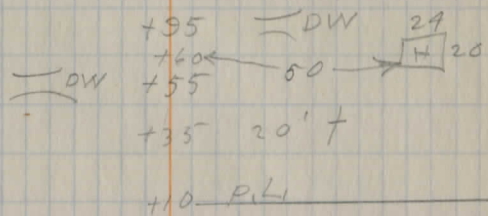 +95 DW 24
+60 50 H 20
DW +55
+35 20' †
+10 P.L.